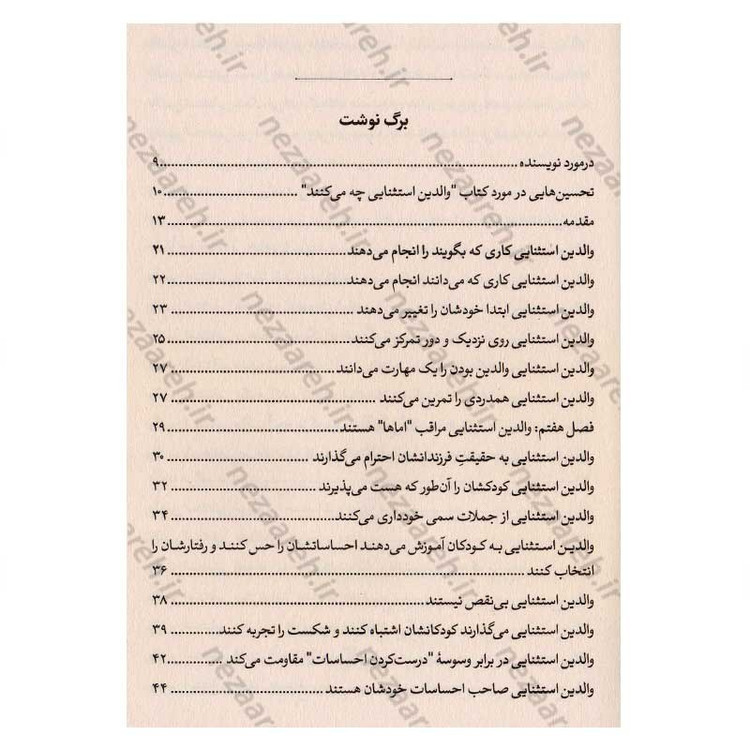 برگ نوشت
درمورد نویسنده ۹
تحسین‌هایی در مورد کتاب "والدین استثنایی چه می‌کنند" ۱۰
مقدمه ۱۳
والدین استثنایی کاری که بگویند را انجام می‌دهند ۲۱
والدین استثنایی کاری که می‌دانند انجام می‌دهند ۲۲
والدین استثنایی ابتدا خودشان را تغییر می‌دهند ۲۳
والدین استثنایی روی نزدیک و دور تمرکز می‌کنند ۲۵
والدین استثنایی والدین بودن را یک مهارت می‌دانند ۲۷
والدین استثنایی همدردی را تمرین می‌کنند ۲۷
فصل هفتم: والدین استثنایی مراقب "اماها" هستند ۲۹
والدین استثنایی به حقیقتِ فرزندانشان احترام می‌گذارند ۳۰
والدین استثنایی کودکشان را آن‌طور که هست می‌پذیرند ۳۲
والدین استثنایی از جملات سمی خودداری می‌کنند ۳۴
والدین استثنایی به کودکان آموزش می‌دهند احساساتشان را حس کنند و رفتارشان را
انتخاب کنند ۳۶
والدین استثنایی بی‌نقص نیستند ۳۸
والدین استثنایی می‌گذارند کودکانشان اشتباه کنند و شکست را تجربه کنند ۳۹
والدین استثنایی در برابر وسوسهٔ "درست‌کردن احساسات" مقاومت می‌کند ۴۲
والدین استثنایی صاحب احساسات خودشان هستند ۴۴
nezaareh.ir